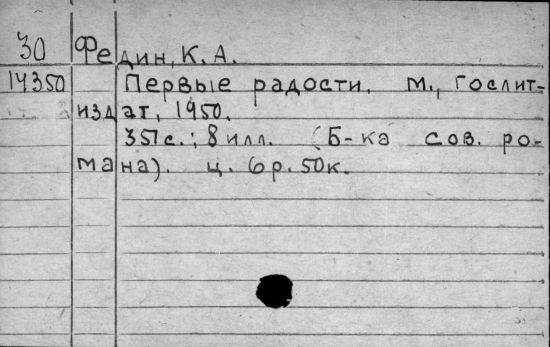 30 Федин, К. А.
14350 Первые радости. М., Гослит-
издат, 1950.
351 с.; 8 илл. (Б-ка сов. ро-
мана). ц. 6 р. 50 к.